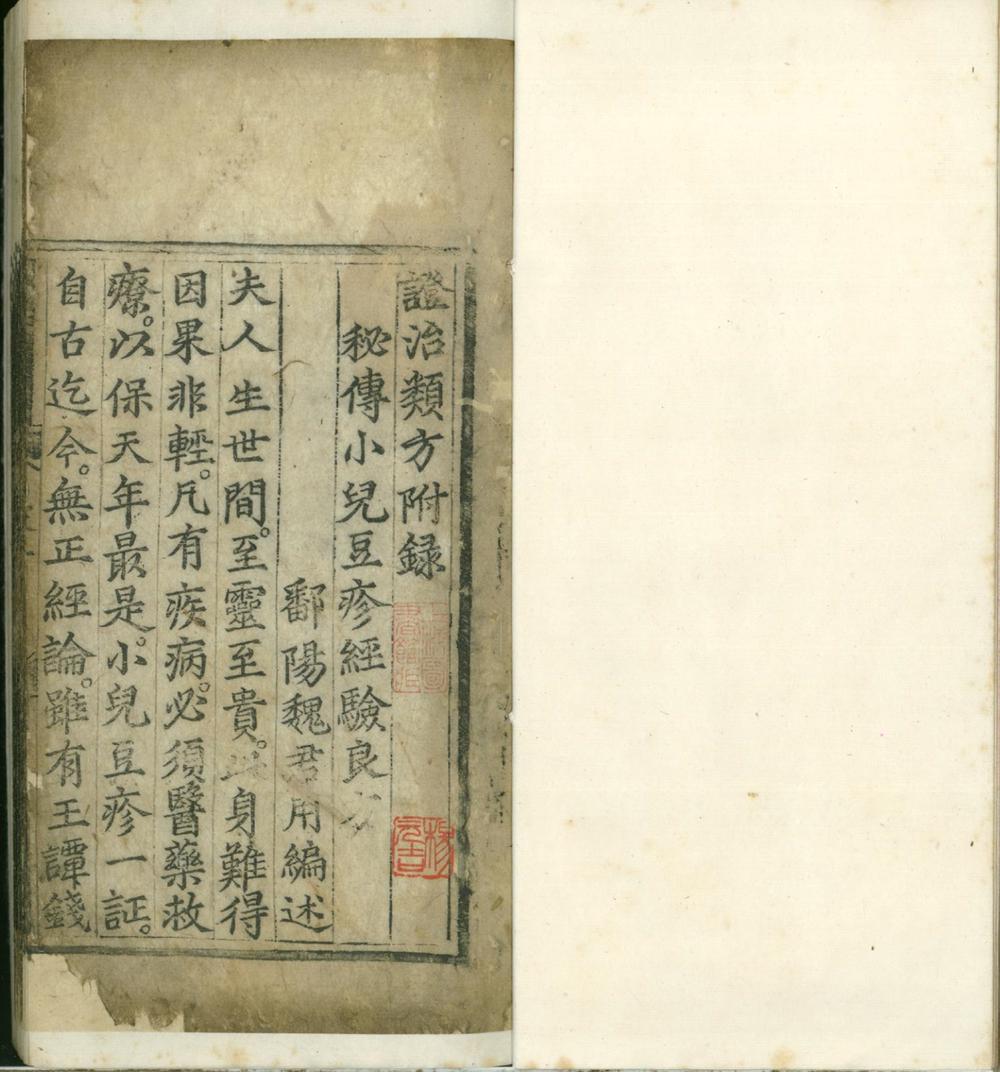 證治類方附録
秘傳小兒豆疹經驗良
鄱陽魏君用編述
夫人生世間。至靈至貴。此身難得
因果非輕。凡有疾病。必須醫藥救
療。以保天年最是。小兒豆疹一証。
自古迄今。無正經論。雖有王譚錢